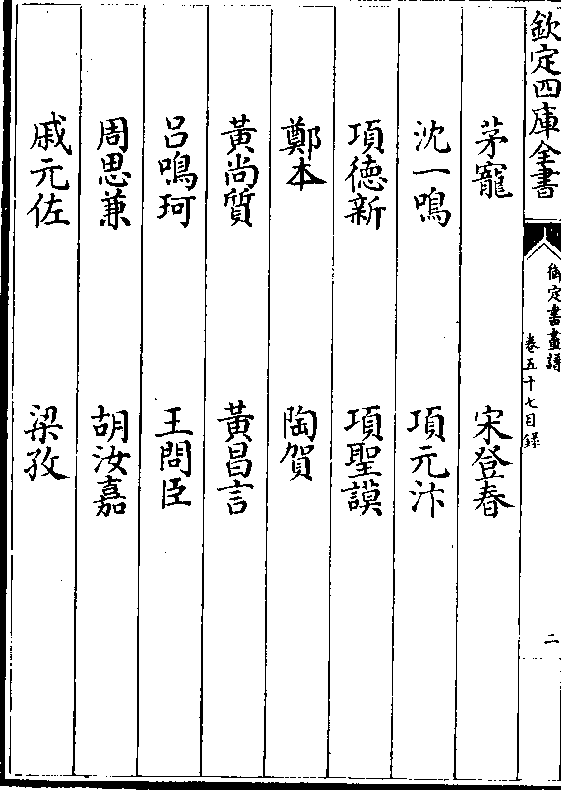 欽定四庫全書
御定書畫譜
卷五十七目錄
二
茅寵 宋登春
沈一鳴 項元汴
項德新 項聖謨
鄭本 陶賀
黃尚質 黃昌言
呂鳴珂 王問臣
周思兼 胡汝嘉
戚元佐 梁孜